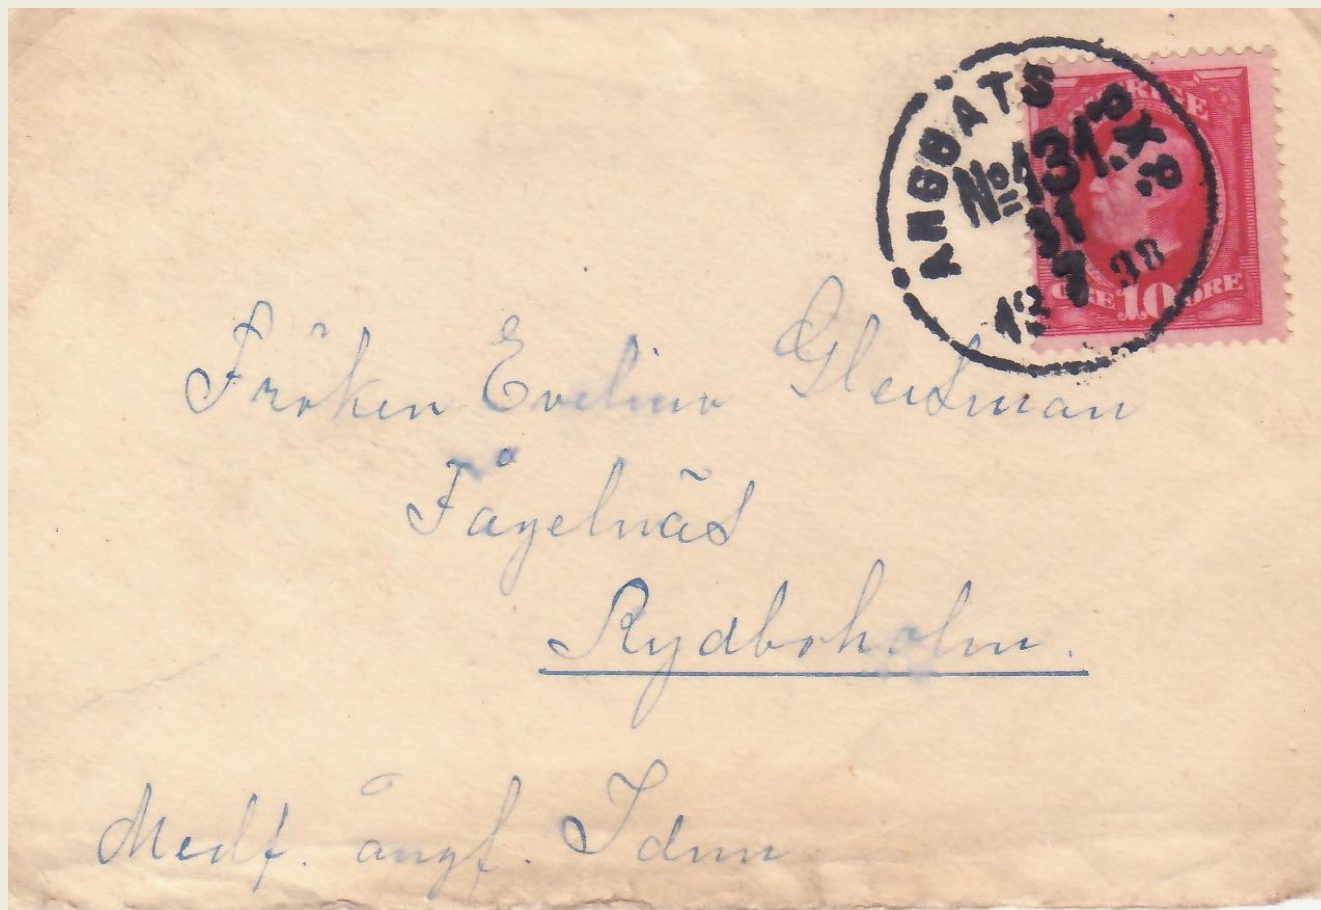 ANGBATS PXP.
No 131.
31
7
1938
SVERIGE
ÖRE 10 ÖRE
Fröken Evelina
Fågelnäs
Rydboholm.
Medf. ångf. Idun